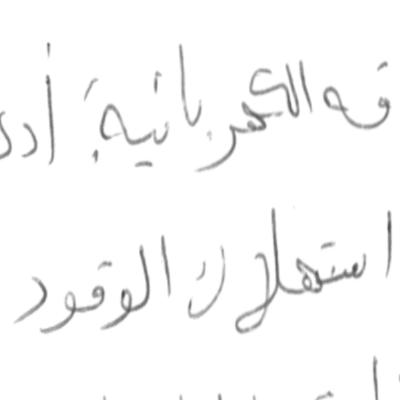 قه الكهربائية أد
استهلاك الوقود